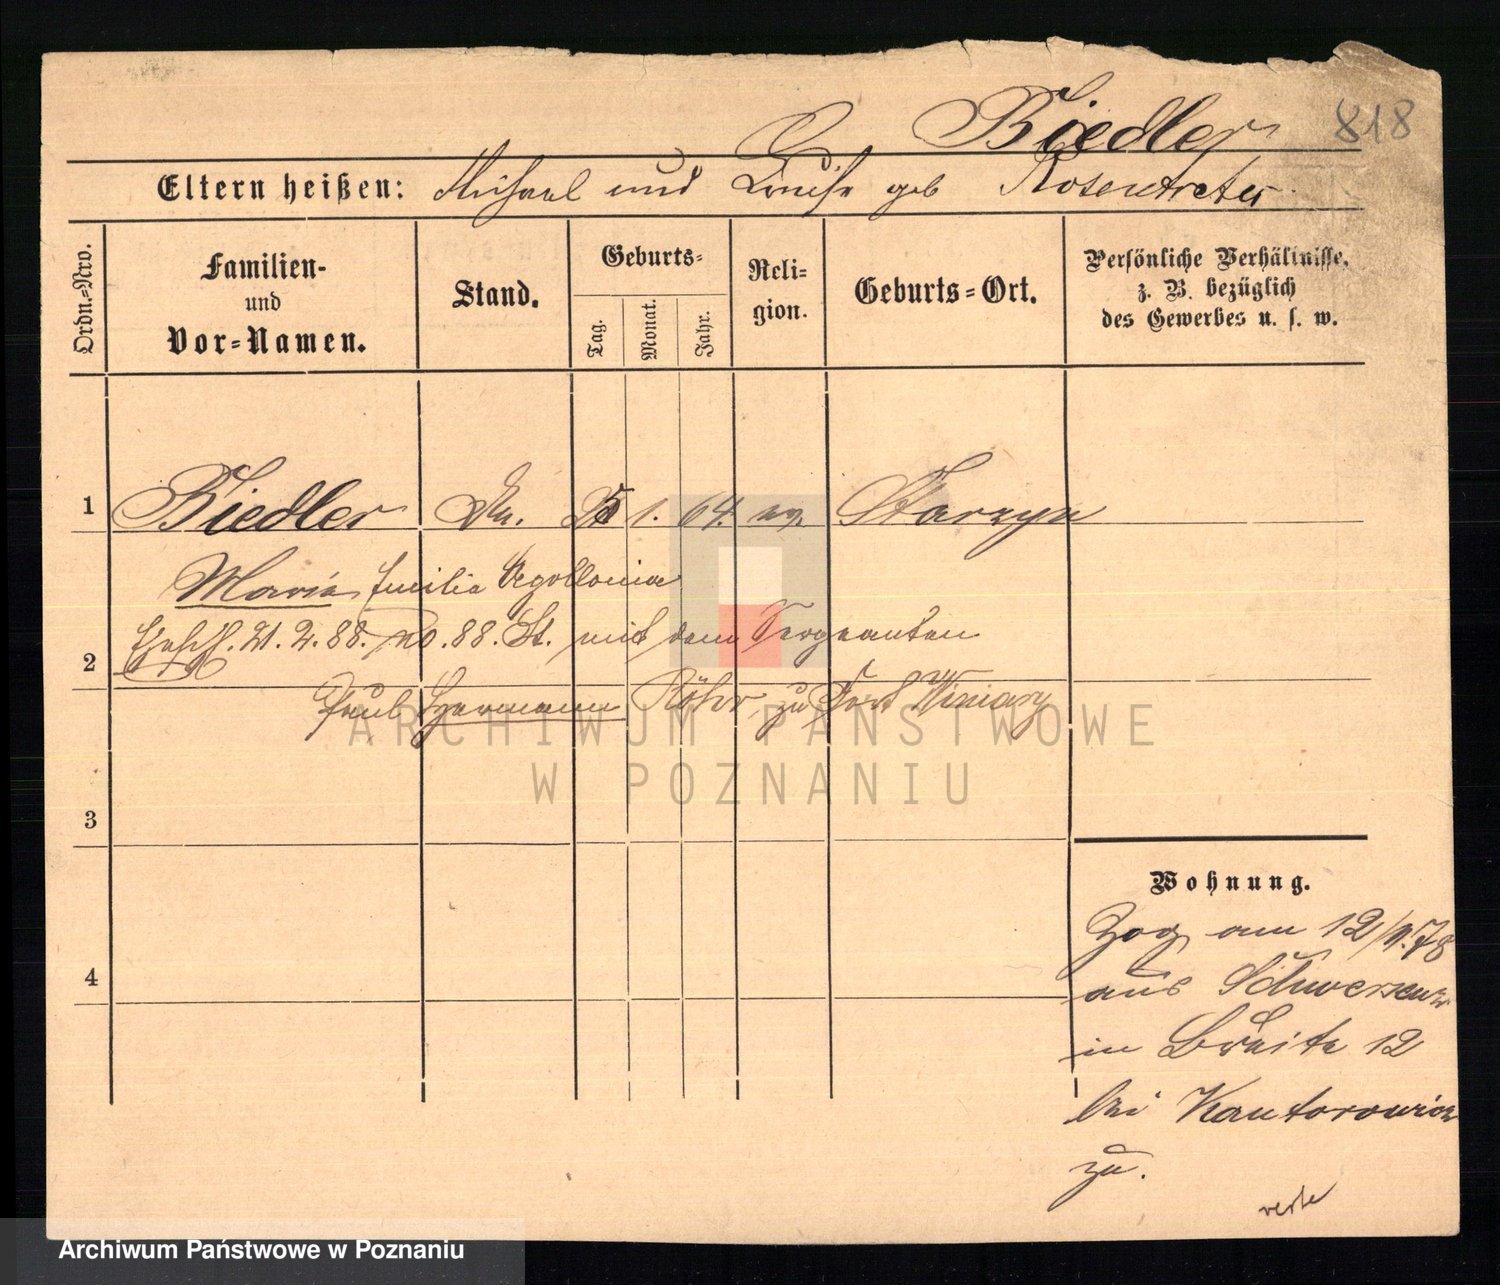 Biedler 818
Eltern heißen: Michael und Louise geb Rosentreter
Ordn.=Nro.
Familien-
und
Vor=Namen.
Stand.
Geburts=
Tag.
Monat.
Jahr.
Reli=
gion.
Geburts=Ort.
Persönliche Verhältnisse,
z. B. bezüglich
des Gewerbes u. s. w.
1 Biedler 1. 64. ev. Starzyn
Maria Emilia Apollonia
21. 2. 88. No. 88. St. mit dem Sergeanten
2
Paul Hermann Röhr, zu Fort Winiary
ARCHIWUM PAŃSTWOWE
W POZNANIU
3
4
Wohnung.
Zog am 12/
aus Schwersenz
in Breite 12
bei Kantorowicz
zu.
Archiwum Państwowe w Poznaniu